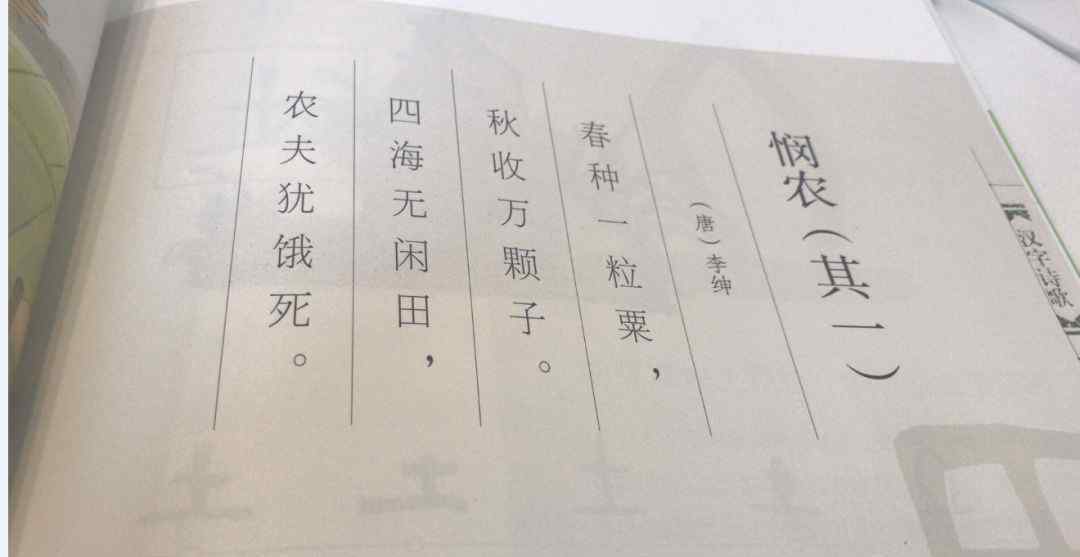 悯农（其一）
（唐）李绅
春种一粒粟，
秋收万颗子。
四海无闲田，
农夫犹饿死。
汉字诗歌